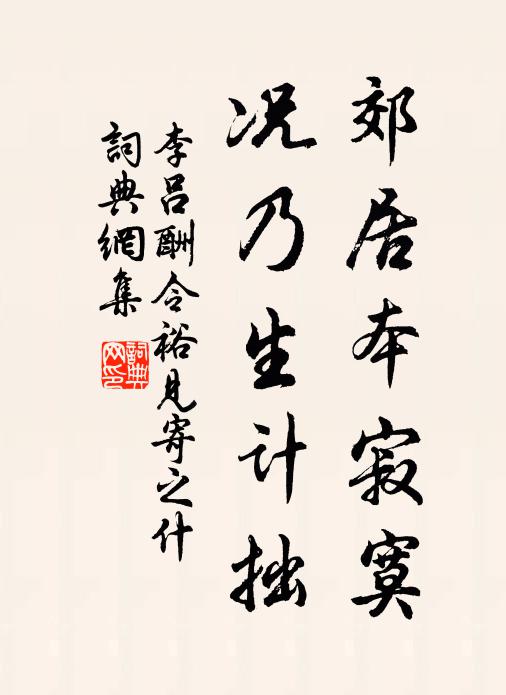 郊居本寂寞
况乃生计拙
李吕酬令裕見寄之什
詞典網集
詞典网印